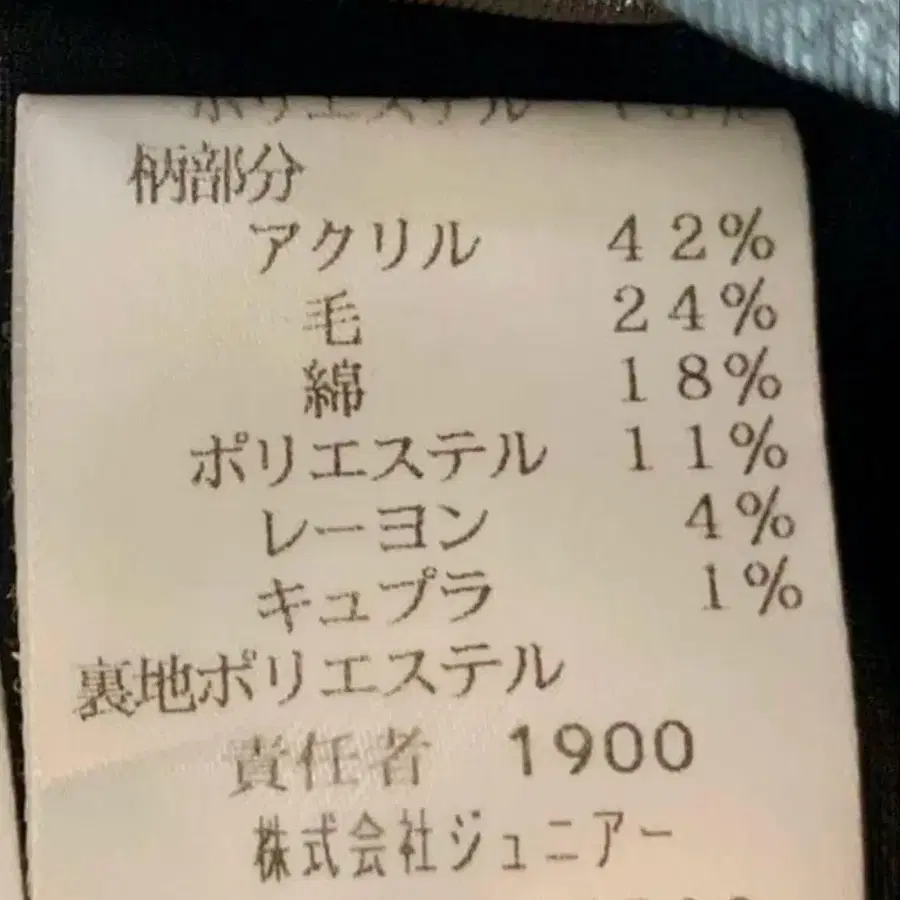 ポリエステル
柄部分
アクリル 42%
毛 24%
綿 18%
ポリエステル 11%
レーヨン 4%
キュプラ 1%
裏地ポリエステル
責任者 1900
株式会社ジュニアー